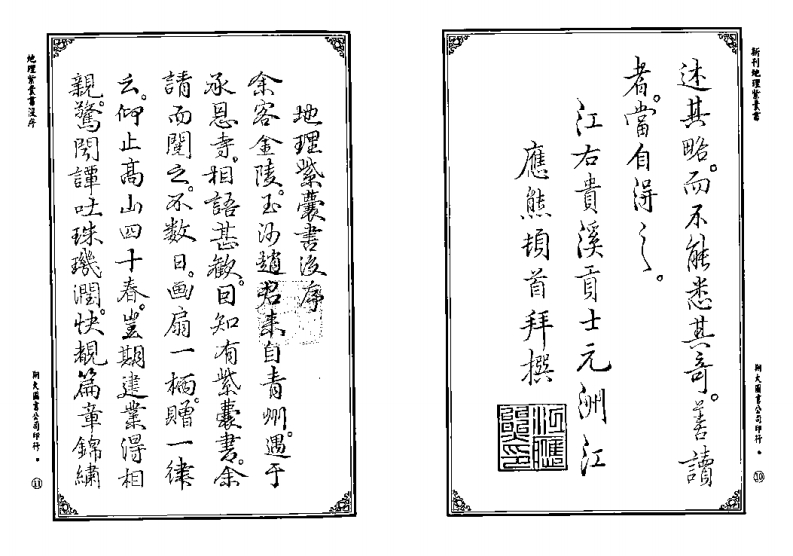 新刊地理紫囊書
翔大圖書公司印行。
⑩
述其略。而不能悉其奇。善讀
者。當自得之。
江右貴溪貢士元洲江
應熊頓首拜撰
江應熊印
地理紫囊書後序
余客金陵。玉沙趙君來自青州。遇于
承恩寺。相語甚歡。曰知有紫囊書。余
請而閱之。不數日。画扇一柄。贈一律
云。仰止高山四十春。豈期建業得相
親。驚聞譚吐珠璣潤。快覩篇章錦繡
地理紫囊書後序
翔大圖書公司印行。
⑪